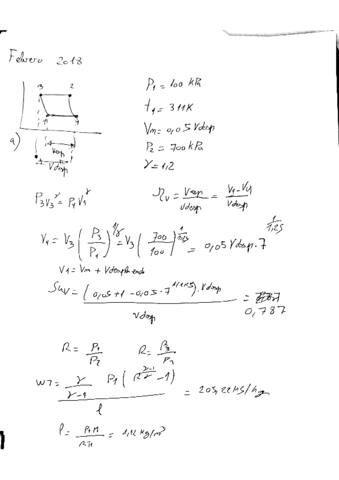 Febrero 2018
3 2
a)
Vasp
Vdesp
P₁ = 100 kPa
t₁ = 311K
Vm = 0,05 Vdesp
P₂ = 700 kPa
γ = 1,2
P₃V₃^γ = P₄V₄^γ
ηv = Vasp/Vdesp = (V₁-V₄)/Vdesp
V₄ = V₃ (P₃/P₄)^(1/γ) = V₃ (700/100)^(1/1,25) = 0,05 Vdesp · 7^(1/1,25)
V₁ = Vm +
= (0,05+1-0,05·7^(1/1,25))·Vdesp / Vdesp =
0,787
R = P₁/P₂ R = P₃/P₂
WT = γ/(γ-1) P₁ (R^((γ-1)/γ) - 1) / ρ = 205,22 kJ/kg
ρ = = 1,12 kg/m³